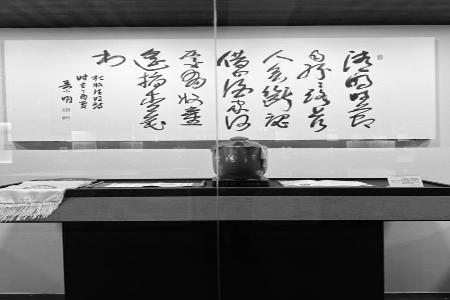 清明時節
雨紛紛路上行
人欲斷魂
借問酒家何
處有牧童
遙指杏花
村
杜牧清明詩